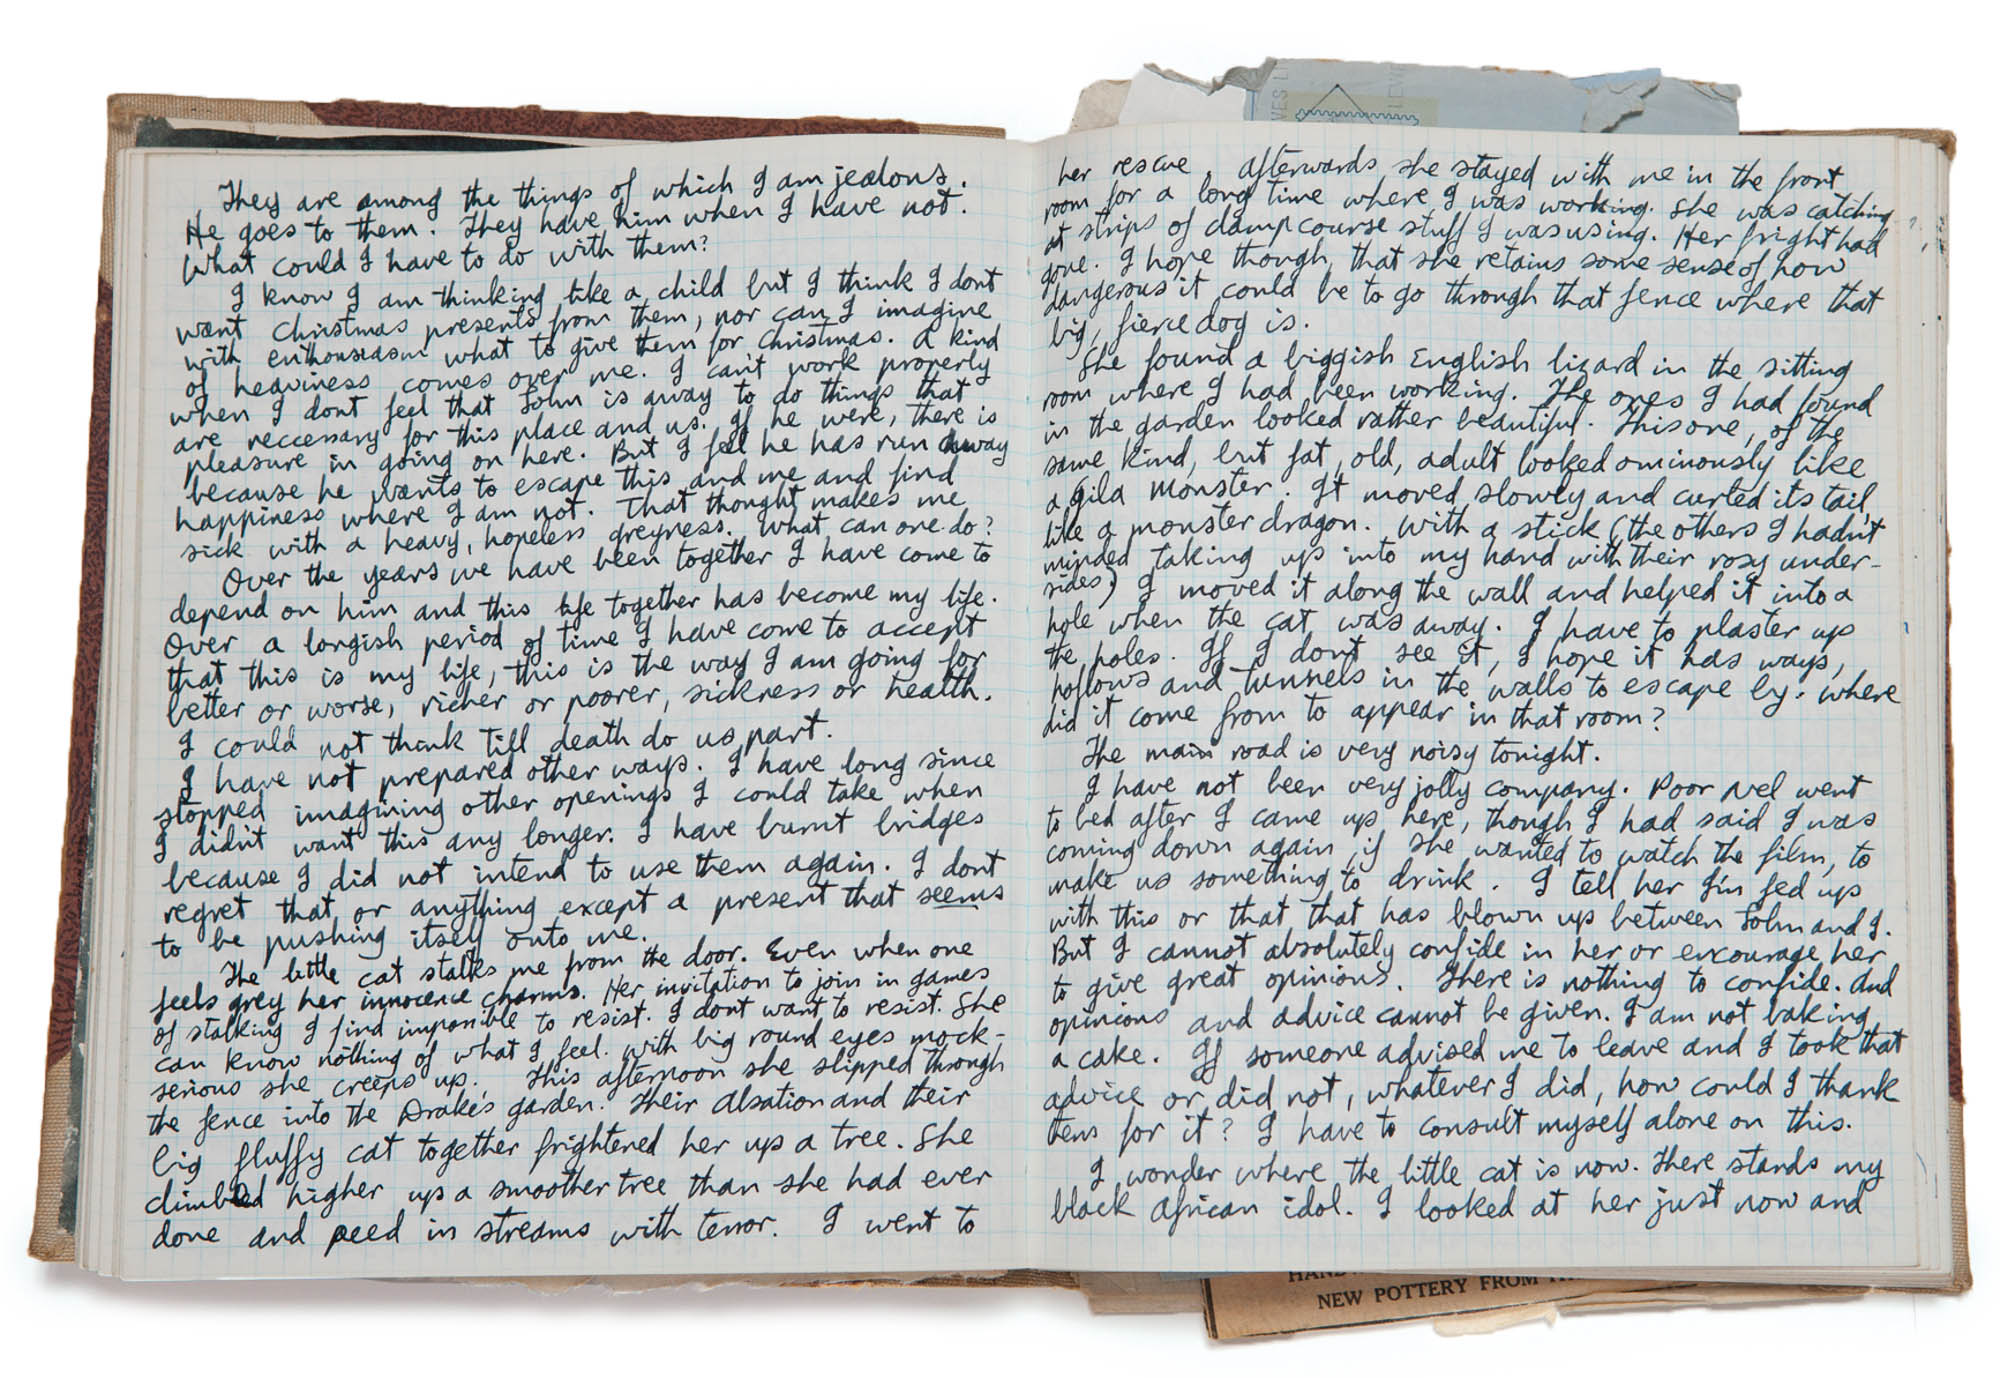 They are among the things of which I am jealous.
He goes to them. They have him when I have not.
What could I have to do with them?
I know I am thinking like a child but I think I dont
want christmas presents from them, nor can I imagine
with enthouseasm what to give them for christmas. A kind
of heaviness comes over me. I can't work properly
when I dont feel that John is away to do things that
are neccessary for this place and us. If he were, there is
pleasure in going on here. But I feel he has run away
because he wants to escape this and me and find
happiness where I am not. That thought makes me
sick with a heavy, hopeless greyness. What can one do?
Over the years we have been together I have come to
depend on him and this life together has become my life.
Over a longish period of time I have come to accept
that this is my life, this is the way I am going for
better or worse, richer or poorer, sickness or health.
I could not think till death do us part.
I have not prepared other ways. I have long since
stopped imagining other openings I could take when
I didn't want this any longer. I have burnt bridges
because I did not intend to use them again. I dont
regret that or anything except a present that seems
to be pushing itself onto me.
The little cat stalks me from the door. Even when one
feels grey her innocence charms. Her invitation to join in games
of stalking I find impossible to resist. I dont want to resist. She
can know nothing of what I feel. With big round eyes mock-
serious she creeps up. This afternoon she slipped through
the fence into the Drake's garden. Their Alsation and their
big fluffy cat together frightened her up a tree. She
climbed higher up a smoother tree than she had ever
done and peed in streams with terror. I went to
her rescue. Afterwards she stayed with me in the front
room for a long time where I was working. She was catching
at strips of damp course stuff I was using. Her fright had
gone. I hope though, that she retains some sense of how
dangerous it could be to go through that fence where that
big, fierce dog is.
She found a biggish English lizard in the sitting
room where I had been working. The ones I had found
in the garden looked rather beautiful. This one, of the
same kind, but fat, old, adult looked ominously like
a gila monster. It moved slowly and curled its tail,
like a monster dragon. With a stick (the others I hadn't
minded taking up into my hand with their rosy under-
sides) I moved it along the wall and helped it into a
hole when the cat was away. I have to plaster up
the holes. If I don't see it, I hope it has ways,
hollows and tunnels in the walls to escape by. Where
did it come from to appear in that room?
The main road is very noisy tonight.
I have not been very jolly company. Poor Nel went
to bed after I came up here, though I had said I was
coming down again if she wanted to watch the film, to
make us something to drink. I tell her I'm fed up
with this or that that has blown up between John and I.
But I cannot absolutely confide in her or encourage her
to give great opinions. There is nothing to confide. And
opinions and advice cannot be given. I am not baking
a cake. If someone advised me to leave and I took that
advice or did not, whatever I did, how could I thank
them for it? I have to consult myself alone on this.
I wonder where the little cat is now. There stands my
black African idol. I looked at her just now and
NEW POTTERY FROM